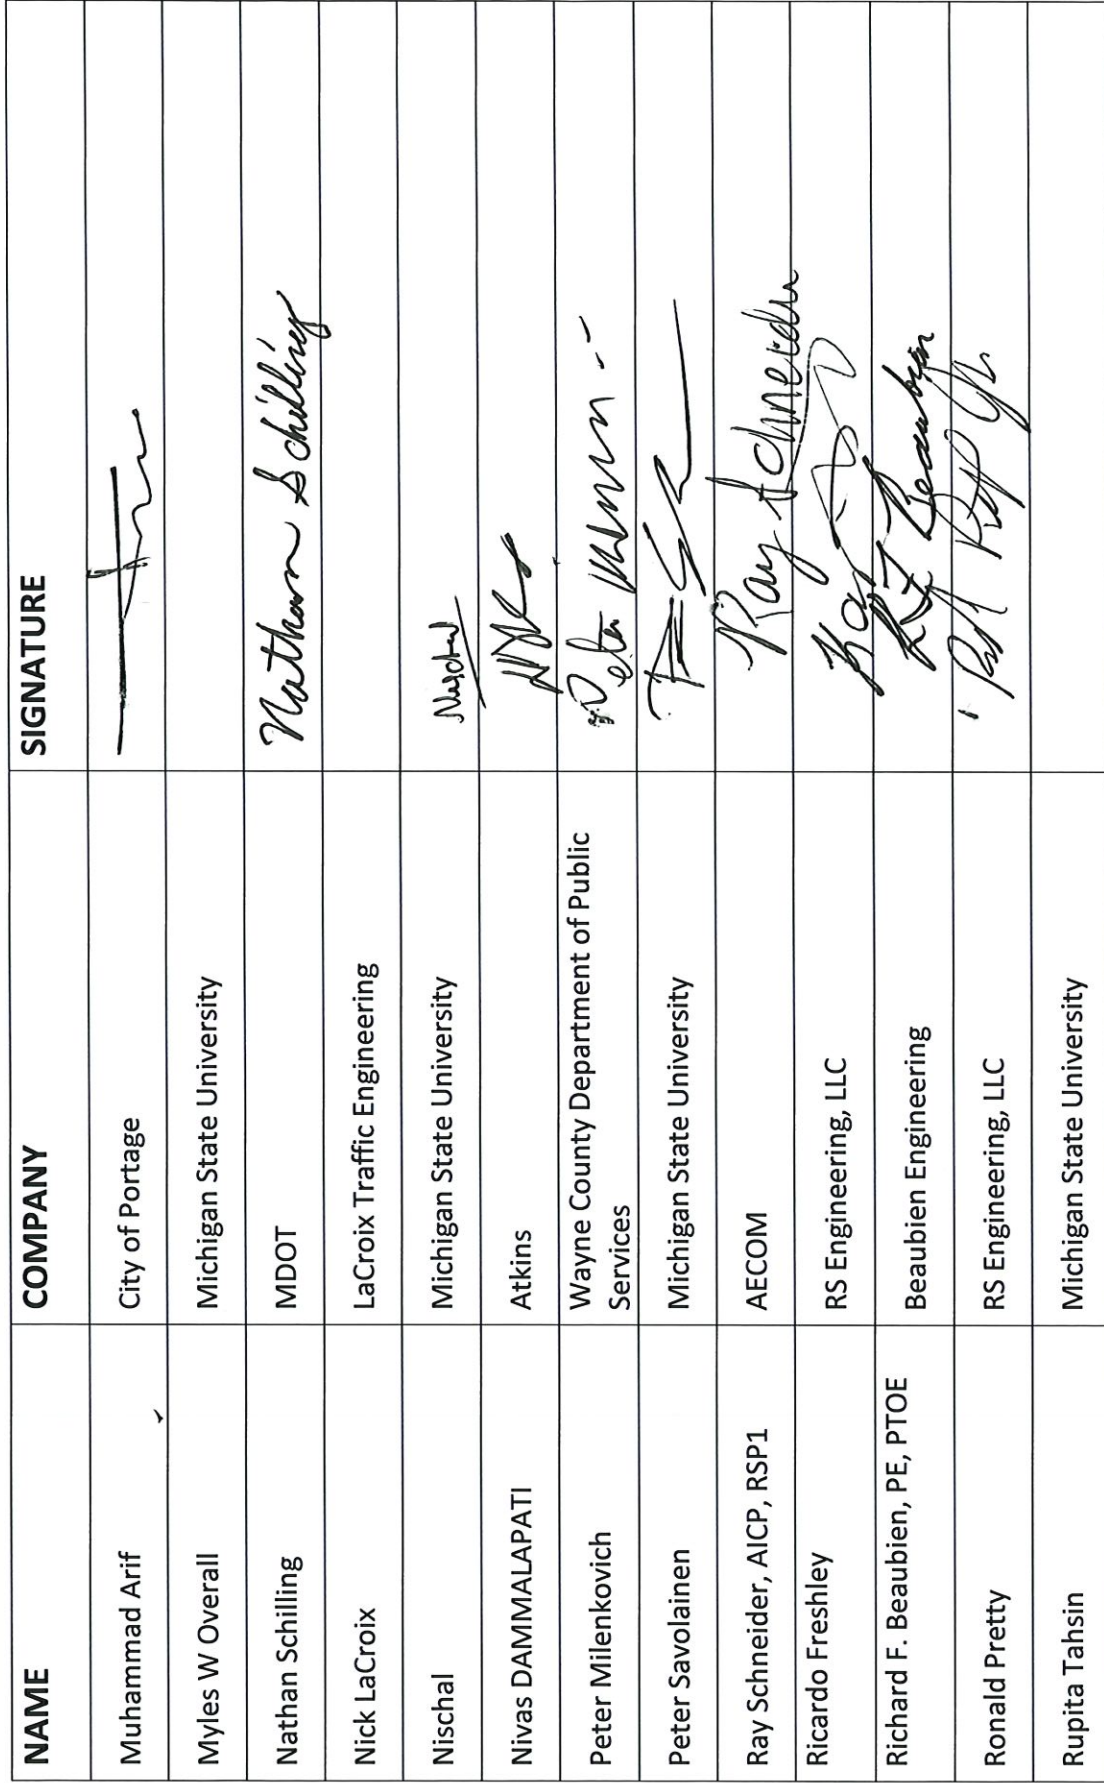 NAME COMPANY SIGNATURE
Muhammad Arif City of Portage
Myles W Overall Michigan State University
Nathan Schilling MDOT Nathan Schilling
Nick LaCroix LaCroix Traffic Engineering
Nischal Michigan State University Nischal
Nivas DAMMALAPATI Atkins
Peter Milenkovich Wayne County Department of Public
Services Peter
Peter Savolainen Michigan State University
Ray Schneider, AICP, RSP1 AECOM Ray Schneider
Ricardo Freshley RS Engineering, LLC
Richard F. Beaubien, PE, PTOE Beaubien Engineering R F Beaubien
Ronald Pretty RS Engineering, LLC
Rupita Tahsin Michigan State University